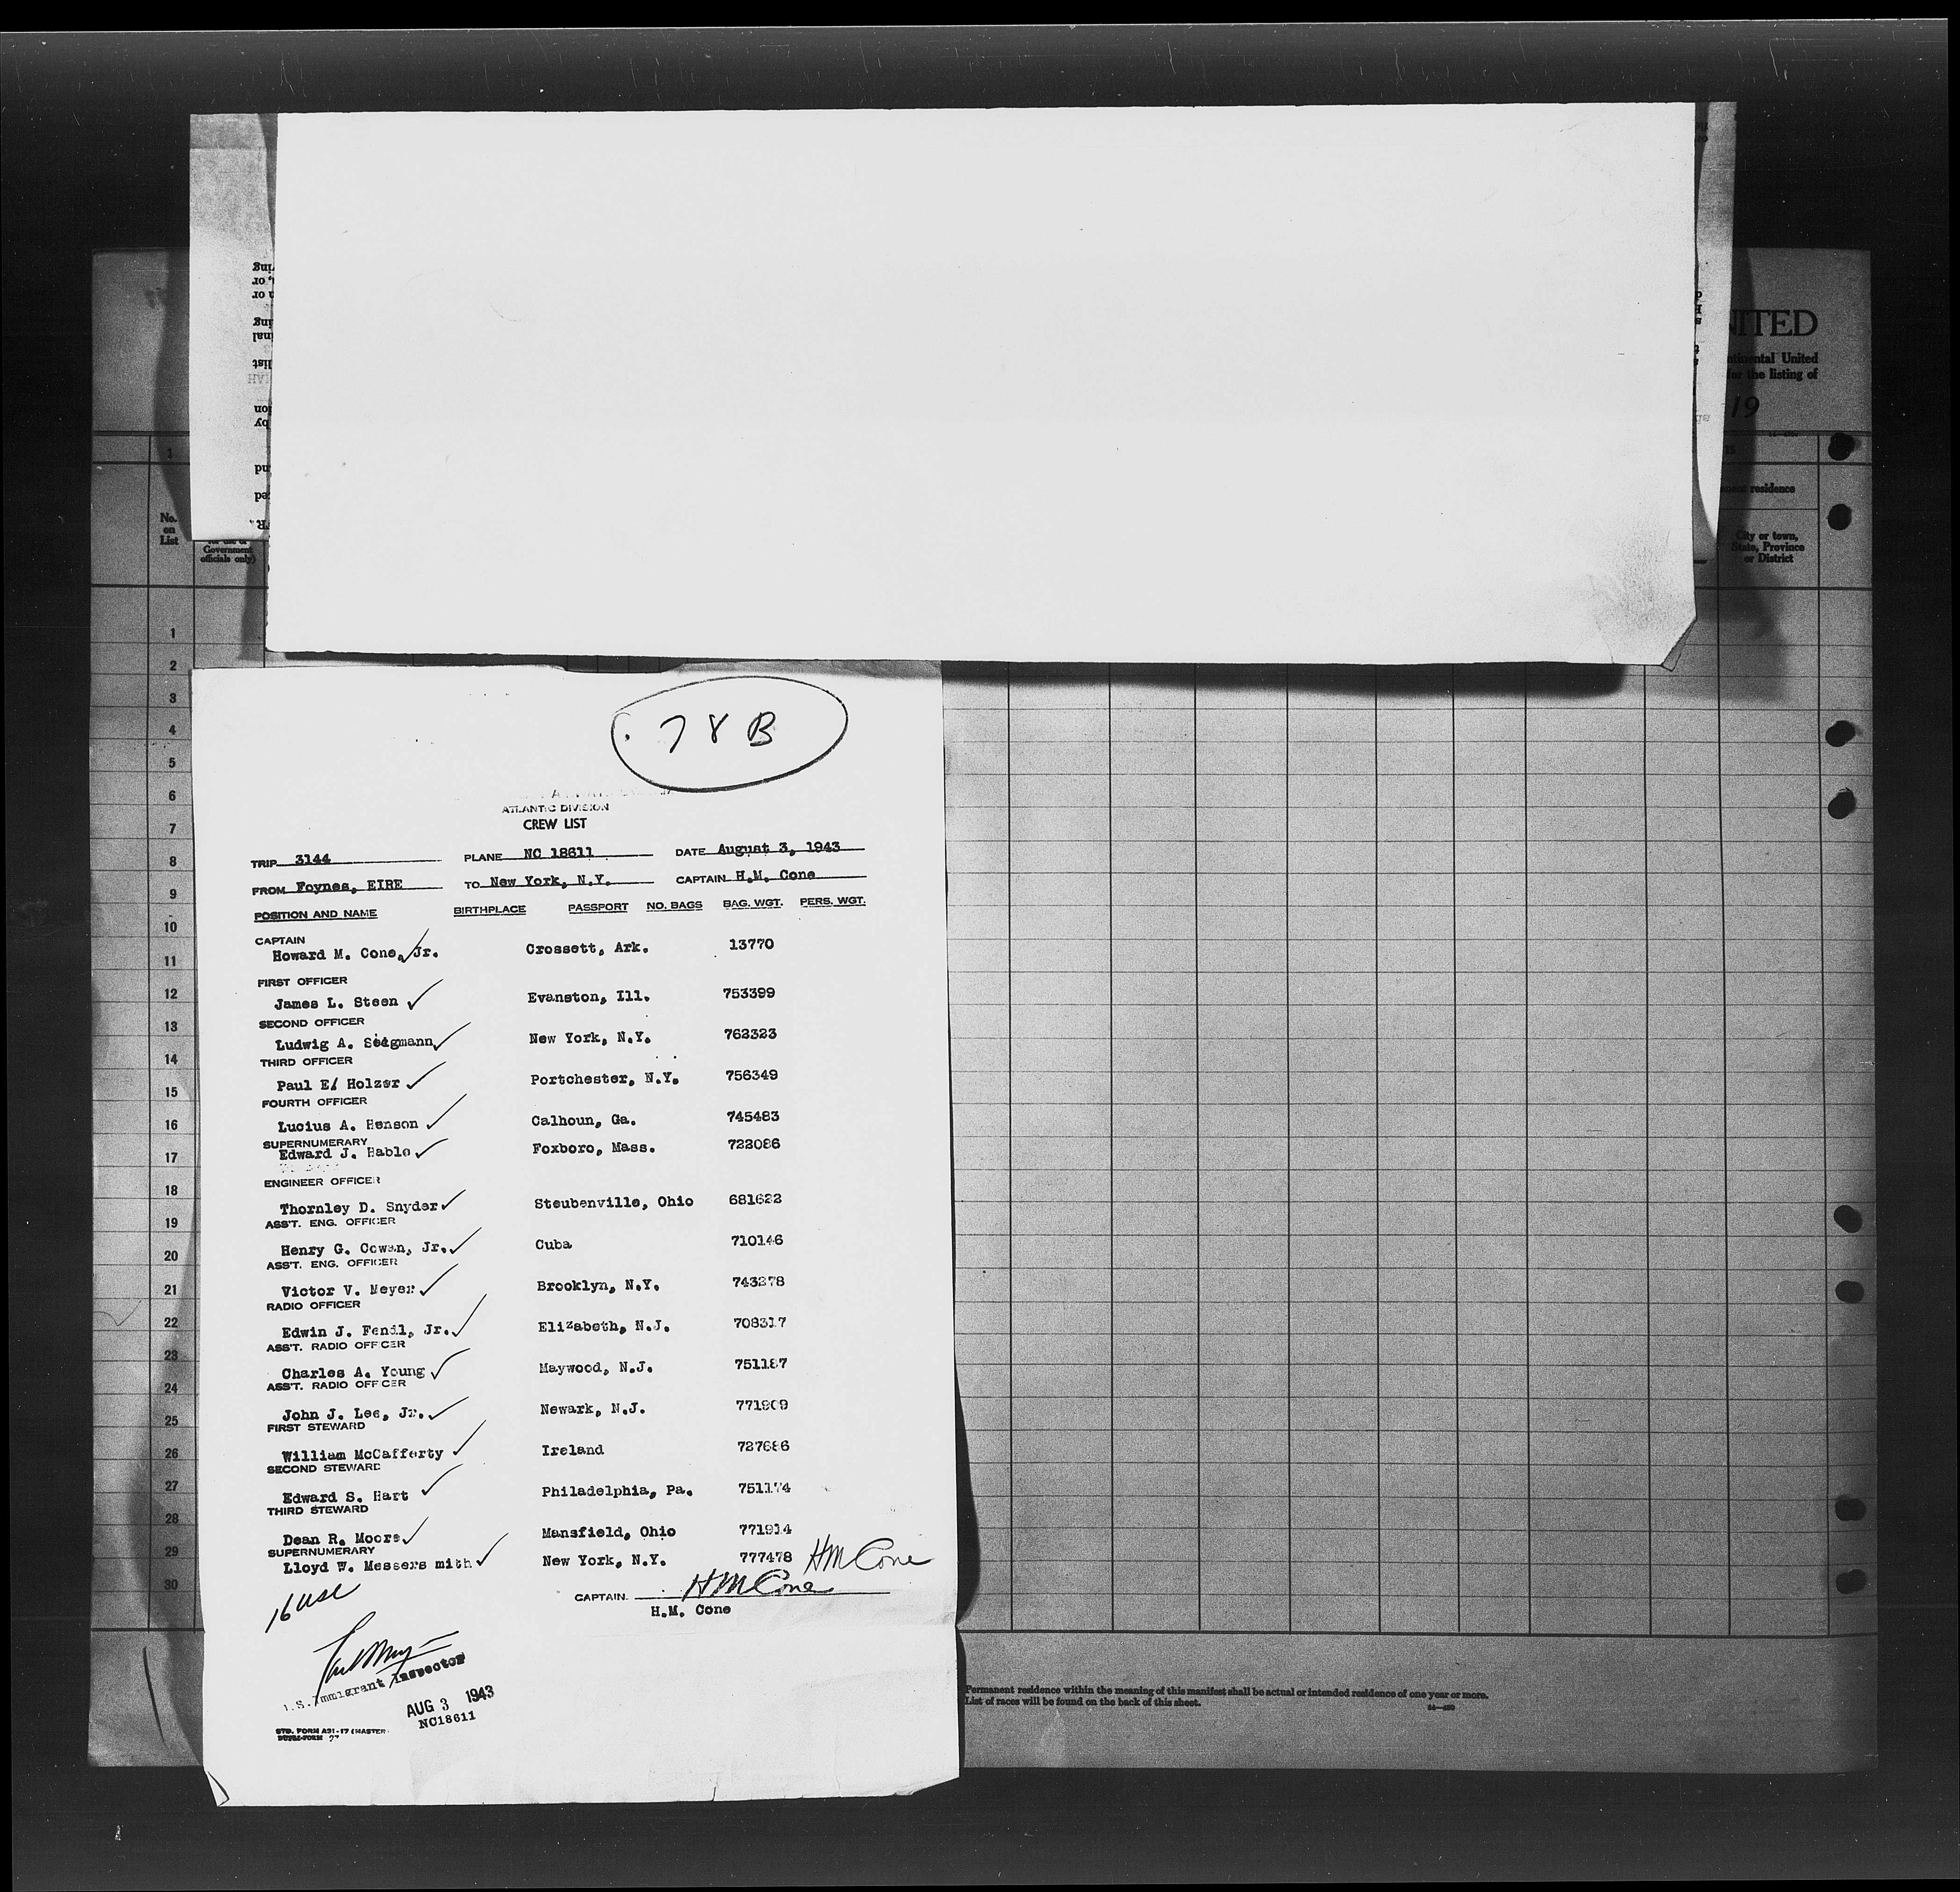 NITED
ntinental United
for the listing of
19
1
residence
No.
on
List
Government
officials only)
City or town,
State, Province
or District
78B
ATLANTIC DIVISION
CREW LIST
TRIP 3144 PLANE NC 18611 DATE August 3, 1943
FROM Foynes, EIRE TO New York, N.Y. CAPTAIN H.M. Cone
POSITION AND NAME BIRTHPLACE PASSPORT NO. BAGS BAG. WGT. PERS. WGT.
CAPTAIN
Howard M. Cone, Jr. Crossett, Ark. 13770
FIRST OFFICER
James L. Steen Evanston, Ill. 753399
SECOND OFFICER
Ludwig A. Seigmann New York, N.Y. 762323
THIRD OFFICER
Paul E. Holzer Portchester, N.Y. 756349
FOURTH OFFICER
Lucius A. Henson Calhoun, Ga. 745483
SUPERNUMERARY
Edward J. Hablo Foxboro, Mass. 722086
ENGINEER OFFICER
Thornley D. Snyder Steubenville, Ohio 681622
ASS'T. ENG. OFFICER
Henry G. Cowan, Jr. Cuba 710146
ASS'T. ENG. OFFICER
Victor V. Meyer Brooklyn, N.Y. 743278
RADIO OFFICER
Edwin J. Fendl, Jr. Elizabeth, N.J. 708317
ASS'T. RADIO OFFICER
Charles A. Young Maywood, N.J. 751187
ASS'T. RADIO OFFICER
John J. Lee, Jr. Newark, N.J. 771909
FIRST STEWARD
William McCafferty Ireland 727686
SECOND STEWARD
Edward S. Hart Philadelphia, Pa. 751174
THIRD STEWARD
Dean R. Moore Mansfield, Ohio 771914
SUPERNUMERARY
Lloyd W. Messers mith New York, N.Y. 777478 HM Cone
CAPTAIN. HM Cone
H.M. Cone
16 USC
U.S. Immigrant Inspector
AUG 3 1943
NC18611
STD. FORM A31-17 (MASTER)
1
2
3
4
5
6
7
8
9
10
11
12
13
14
15
16
17
18
19
20
21
22
23
24
25
26
27
28
29
30
Permanent residence within the meaning of this manifest shall be actual or intended residence of one year or more.
List of races will be found on the back of this sheet.